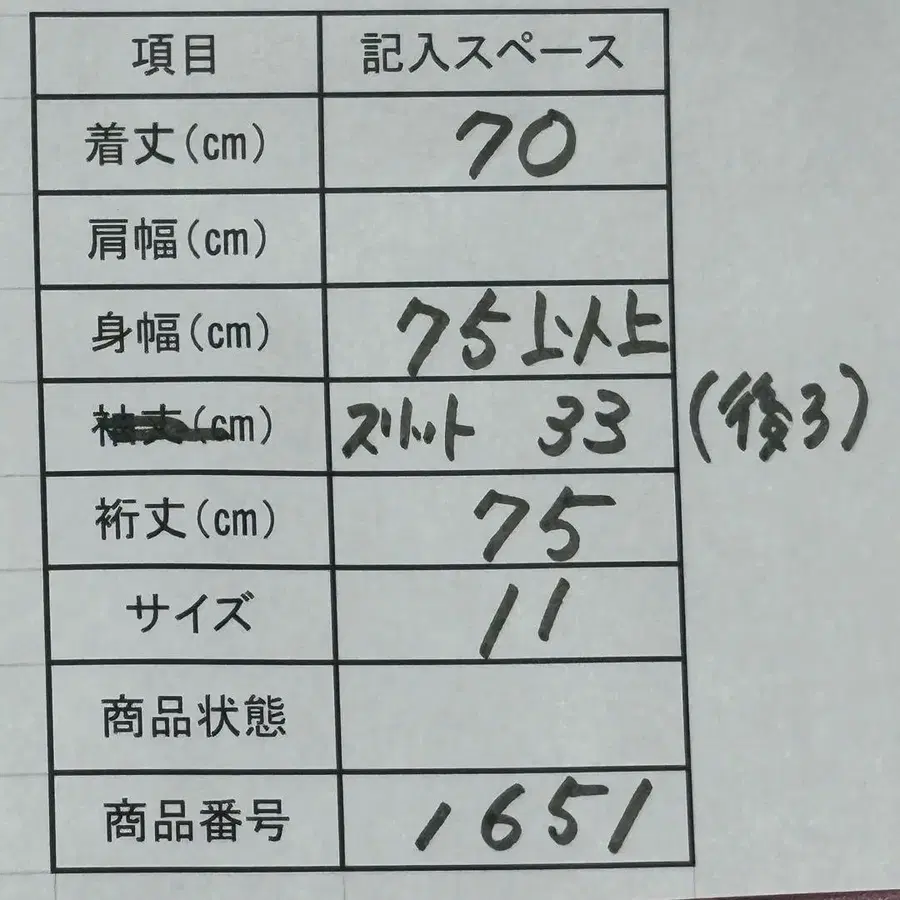 項目 記入スペース
着丈(cm) 70
肩幅(cm)
身幅(cm) 75以上
袖丈(cm) スリット 33 (後ろ)
裄丈(cm) 75
サイズ 11
商品状態
商品番号 1651